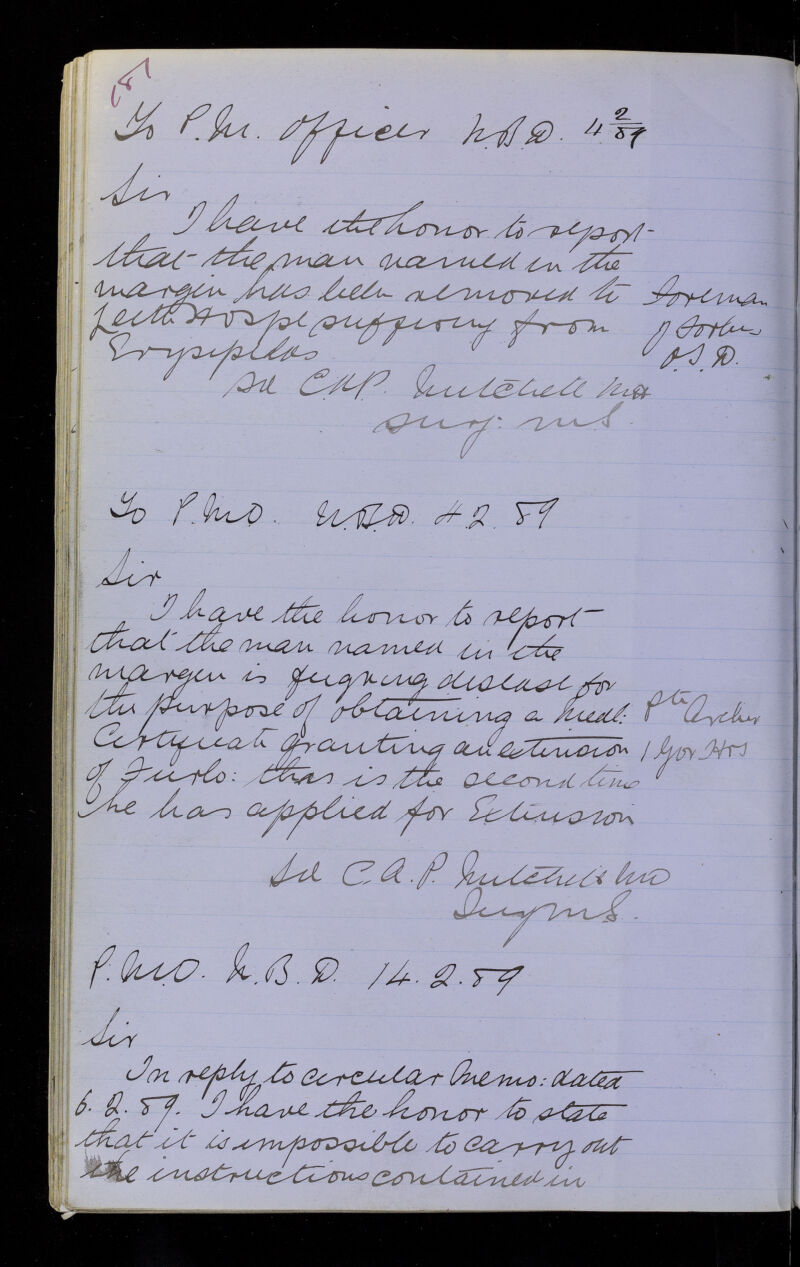 181
To P.M. Officer N.B.D. 4 2/89
Sir
I have the honor to report
that the man named in the
margin has been removed to Foreman
Leith Hospl suffering from of
Erysipelas O.S.D.
Sd C.A.P. Mitchell MD
Surg: M.S.
To P.M.O. N.B.D. 4 2. 89
Sir
I have the honor to report
that the man named in the
margin is feigning disease for
the purpose of obtaining a Medl: Pte Archer
Certificate granting an extension 1 Gor Hrs
of Furlo: this is the second time
he has applied for Extension
Sd C.A.P. Mitchell MD
Surg M.S.
P.M.O. N.B.D. 14.2.89
Sir
In reply to circular Memo: dated
6.2.89. I have the honor to state
that it is impossible to carry out
the instructions contained in